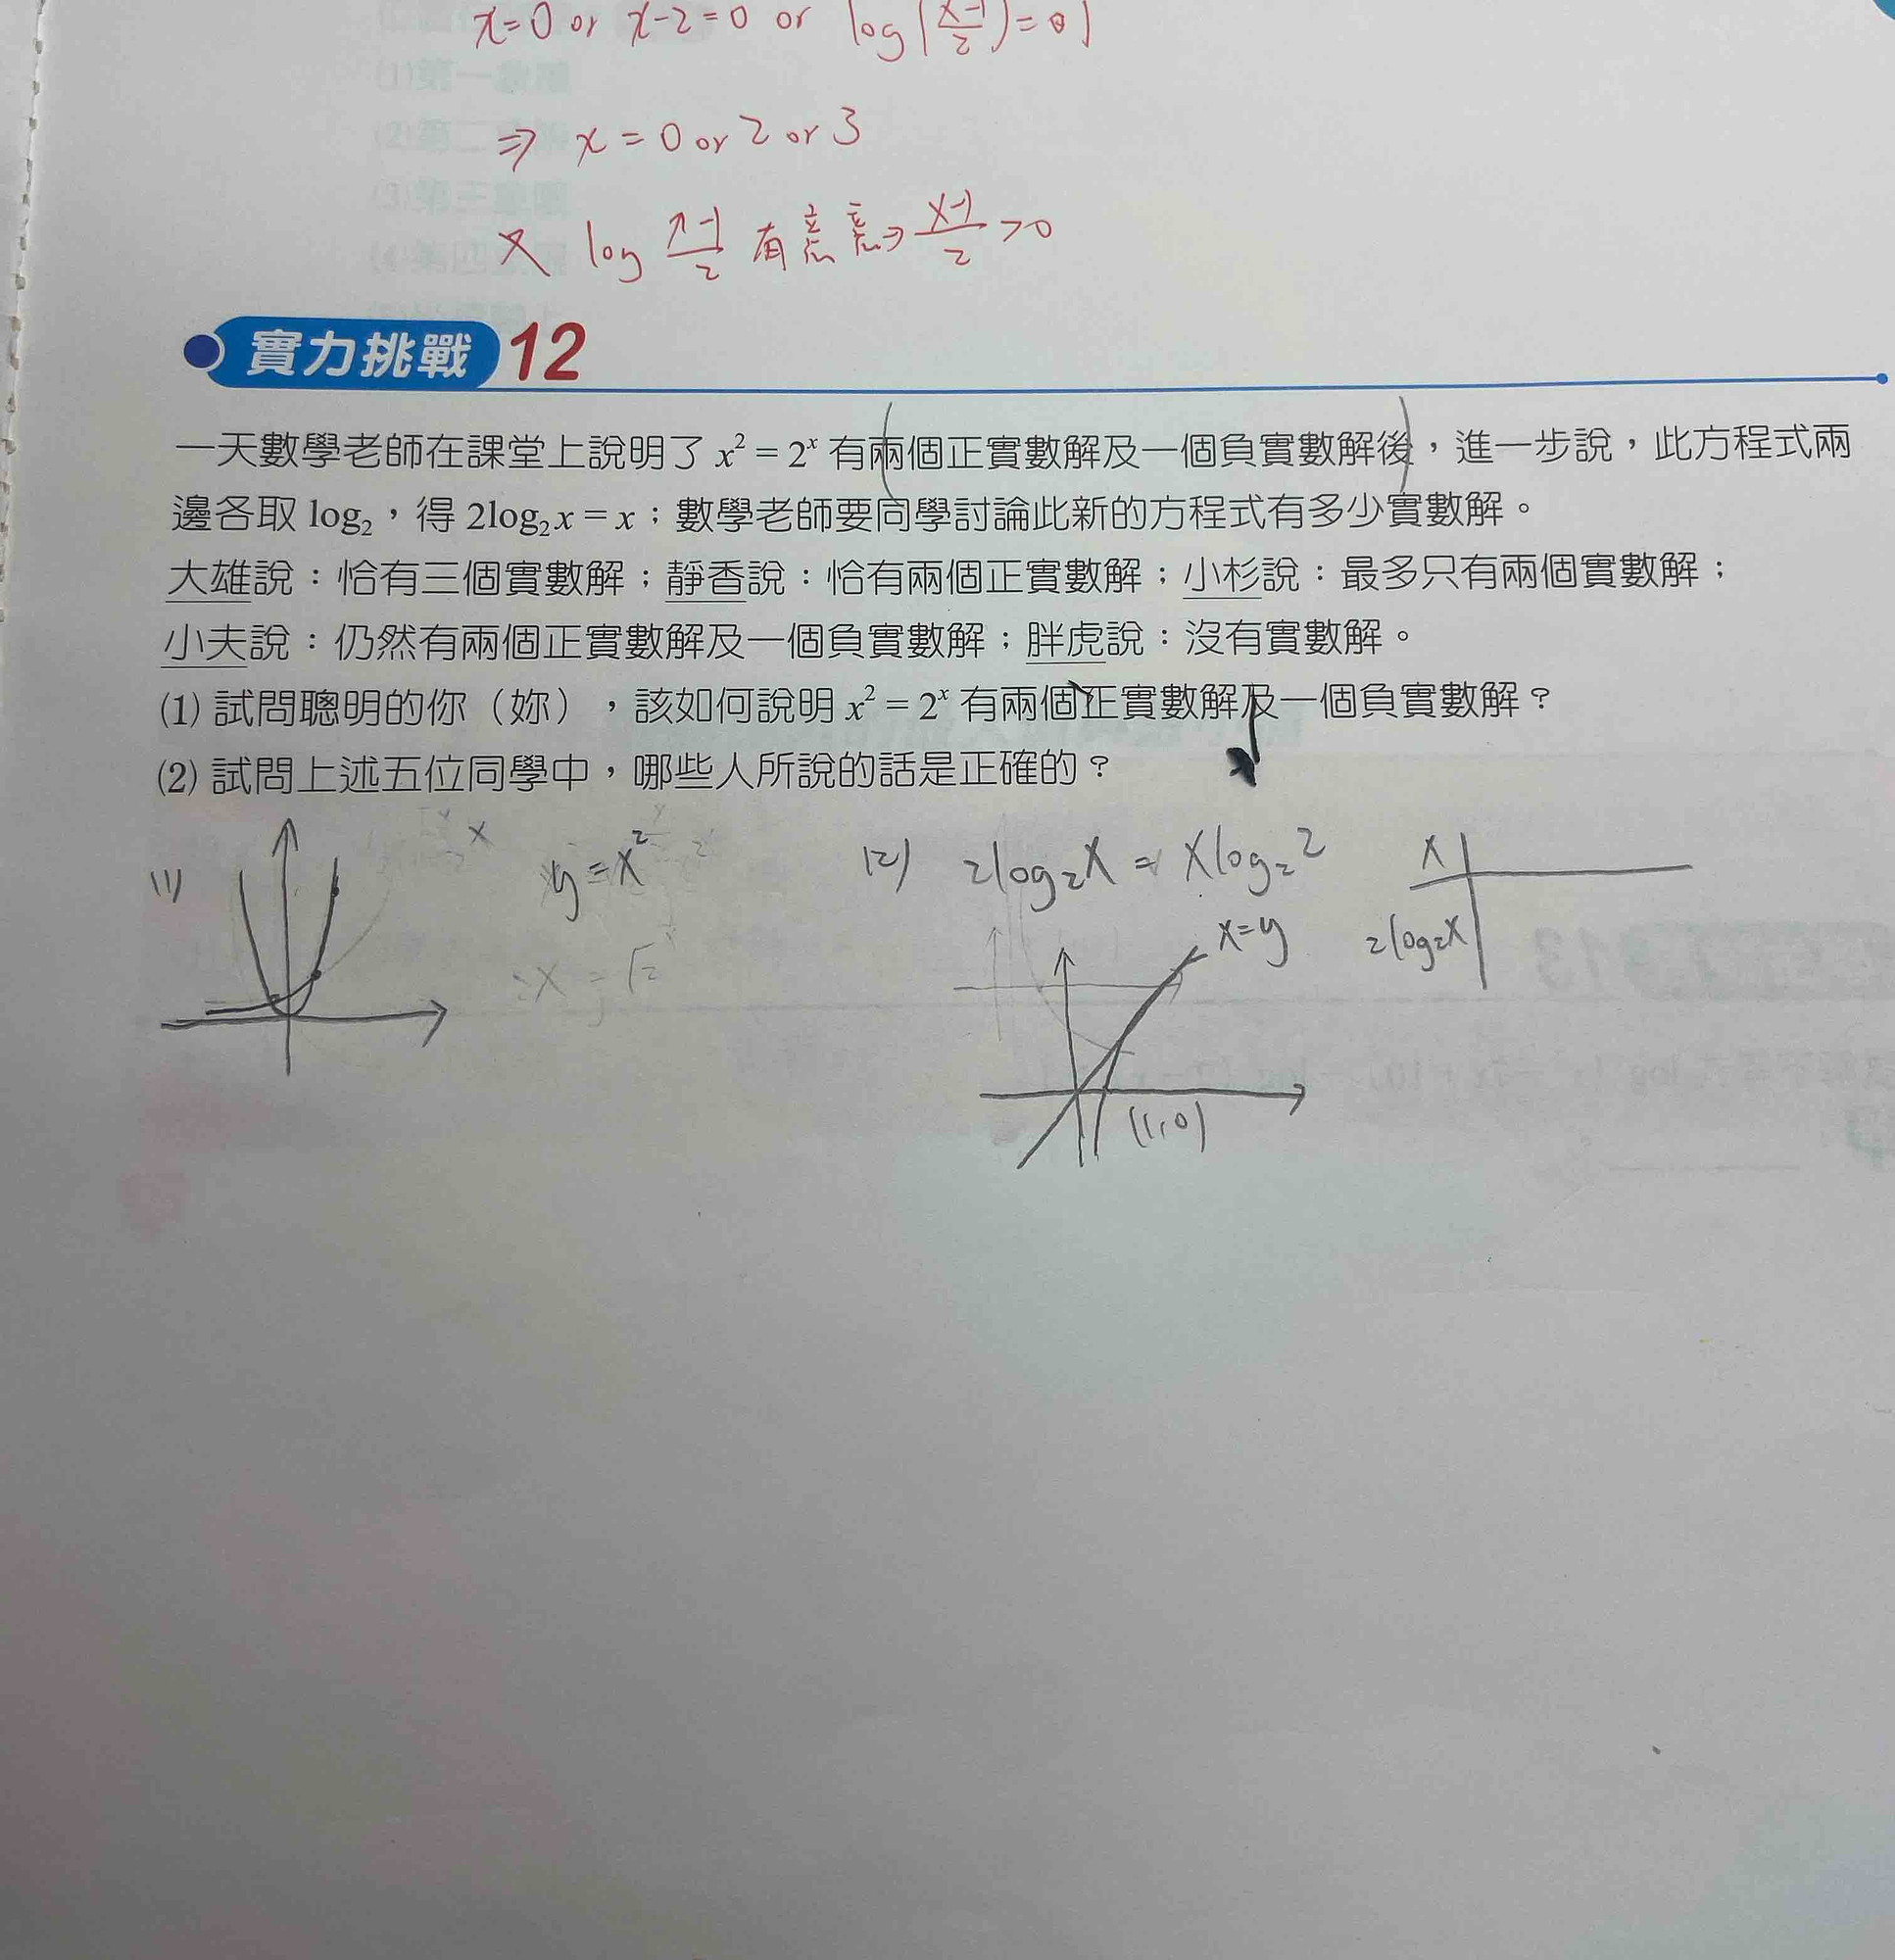 x=0 or x-2=0 or log(x-1/2)=1
⇒ x=0 or 2 or 3
又 log x-1/2 有意義⇒ x-1/2 >0
實力挑戰 12
一天數學老師在課堂上說明了 x² = 2ˣ 有兩個正實數解及一個負實數解後，進一步說，此方程式兩
邊各取 log₂，得 2log₂x = x；數學老師要同學討論此新的方程式有多少實數解。
大雄說：恰有三個實數解；靜香說：恰有兩個正實數解；小杉說：最多只有兩個實數解；
小夫說：仍然有兩個正實數解及一個負實數解；胖虎說：沒有實數解。
(1) 試問聰明的你（妳），該如何說明 x² = 2ˣ 有兩個正實數解及一個負實數解？
(2) 試問上述五位同學中，哪些人所說的話是正確的？
(1) y=x²
(2) 2log₂x = xlog₂2
x
2log₂x
x=y
(1,0)